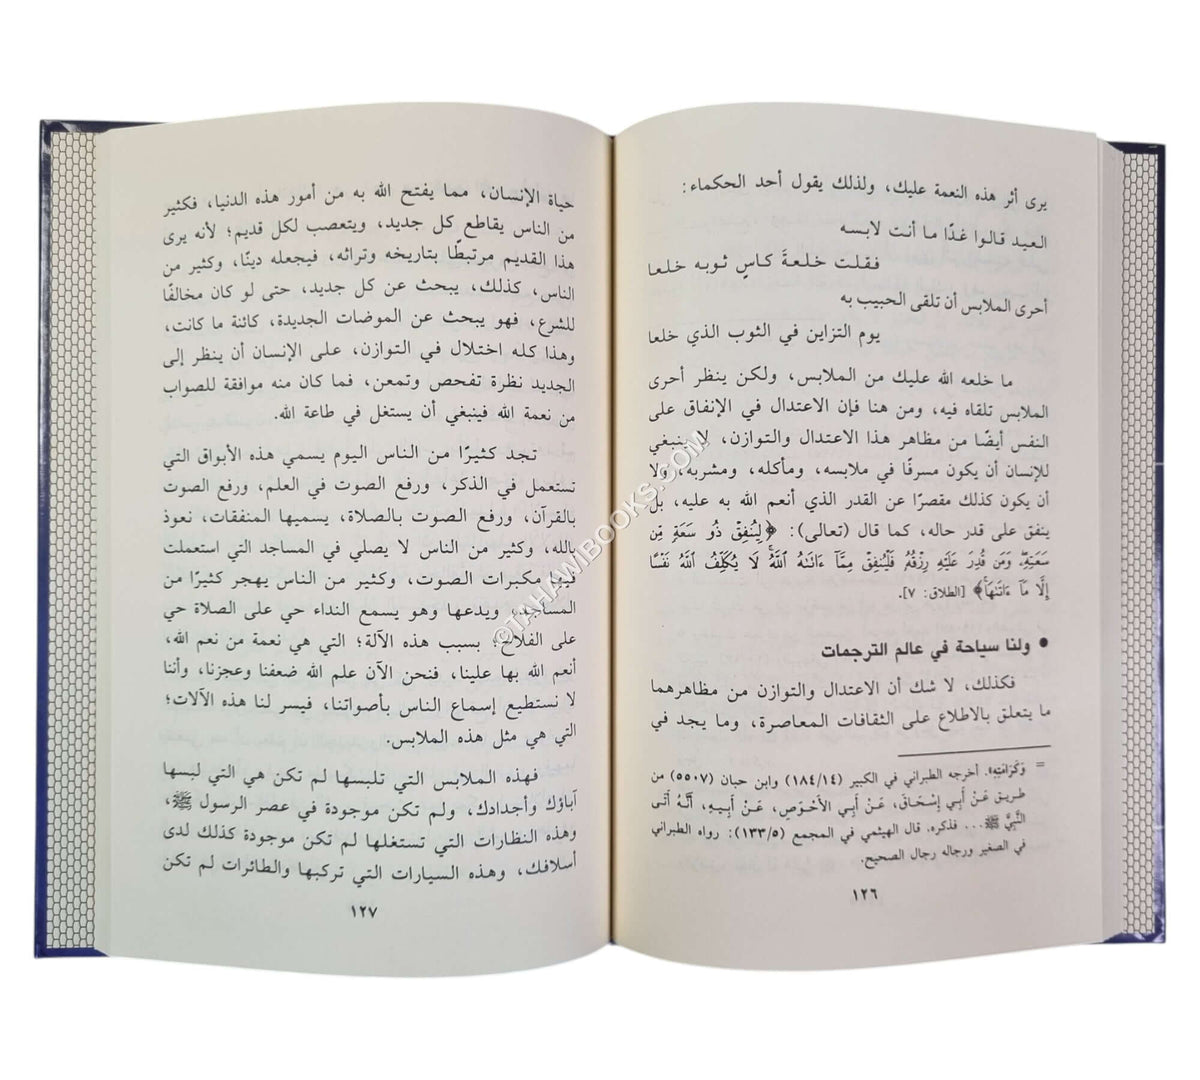 يرى أثر هذه النعمة عليك، ولذلك يقول أحد الحكماء:
العيد قالوا غدًا ما أنت لابسه
فقلت خلعةَ كاسٍ ثوبه خلعا
أحرى الملابس أن تلقى الحبيب به
يوم التزاين في الثوب الذي خلعا
ما خلعه الله عليك من الملابس، ولكن ينظر أحرى
الملابس تلقاه فيه، ومن هنا فإن الاعتدال في الإنفاق على
النفس أيضًا من مظاهر هذا الاعتدال والتوازن، لا ينبغي
للإنسان أن يكون مسرفًا في ملابسه، ومأكله، ومشربه، ولا
أن يكون كذلك مقصرًا عن القدر الذي أنعم الله به عليه، بل
ينفق على قدر حاله، كما قال (تعالى): ﴿لِيُنفِقْ ذُو سَعَةٍ مِّن
سَعَتِهِۦ وَمَن قُدِرَ عَلَيْهِ رِزْقُهُۥ فَلْيُنفِقْ مِمَّآ ءَاتَىٰهُ ٱللَّهُ لَا يُكَلِّفُ ٱللَّهُ نَفْسًا
إِلَّا مَآ ءَاتَىٰهَا﴾ [الطلاق: ٧].
• ولنا سياحة في عالم الترجمات
فكذلك، لا شك أن الاعتدال والتوازن من مظاهرهما
ما يتعلق بالاطلاع على الثقافات المعاصرة، وما يجد في
= وَكَرَامَتِهِ». أخرجه الطبراني في الكبير (١٨٤/١٤) وابن حبان (٥٥٠٧) من
طريق عَنْ أَبِي إِسْحَاقَ، عَنْ أَبِي الأَحْوَصِ، عَنْ أَبِيهِ، أَنَّهُ أَتَى
النَّبِيَّ ﷺ ... فذكره. قال الهيثمي في المجمع (١٣٣/٥): رواه الطبراني
في الصغير ورجاله رجال الصحيح.
١٢٦
حياة الإنسان، مما يفتح الله به من أمور هذه الدنيا، فكثير
من الناس يقاطع كل جديد، ويتعصب لكل قديم؛ لأنه يرى
هذا القديم مرتبطًا بتاريخه وتراثه، فيجعله دينًا، وكثير من
الناس، كذلك، يبحث عن كل جديد، حتى لو كان مخالفًا
للشرع، فهو يبحث عن الموضات الجديدة، كائنة ما كانت،
وهذا كله اختلال في التوازن، على الإنسان أن ينظر إلى
الجديد نظرة تفحص وتمعن، فما كان منه موافقة للصواب
من نعمة الله فينبغي أن يستغل في طاعة الله.
تجد كثيرًا من الناس اليوم يسمي هذه الأبواق التي
تستعمل في الذكر، ورفع الصوت في العلم، ورفع الصوت
بالقرآن، ورفع الصوت بالصلاة، يسميها المنفقات، نعوذ
بالله، وكثير من الناس لا يصلي في المساجد التي استعملت
فيها مكبرات الصوت، وكثير من الناس يهجر كثيرًا من
المساجد، ويدعها وهو يسمع النداء حي على الصلاة حي
على الفلاح؛ بسبب هذه الآلة؛ التي هي نعمة من نعم الله،
أنعم الله بها علينا، فنحن الآن علم الله ضعفنا وعجزنا، وأننا
لا نستطيع إسماع الناس بأصواتنا، فيسر لنا هذه الآلات؛
التي هي مثل هذه الملابس.
فهذه الملابس التي تلبسها لم تكن هي التي لبسها
آباؤك وأجدادك، ولم تكن موجودة في عصر الرسول ﷺ،
وهذه النظارات التي تستغلها لم تكن موجودة كذلك لدى
أسلافك، وهذه السيارات التي تركبها والطائرات لم تكن
١٢٧
©TAHAWIBOOKS.COM